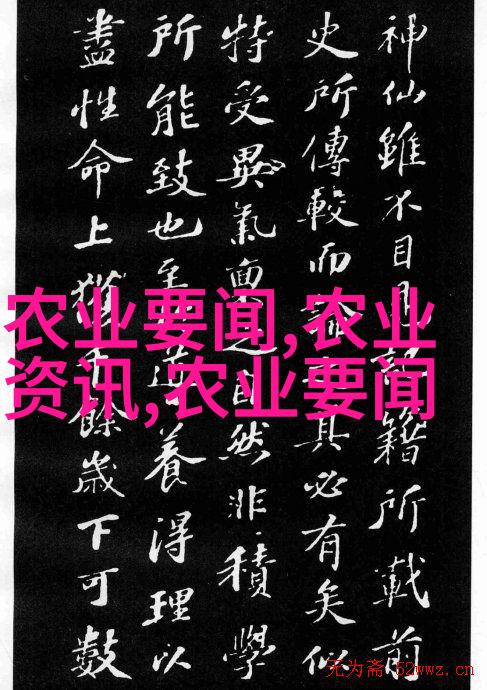 神仙雖不目見記籍所載前
史所傳較而論之其必有矣似
特受異氣稟之自然非積學
所能致也至養得理以
盡性命上獲千餘歲下可數
农业要闻,农业
资讯,农业要闻
无为斋 52wwz.cn